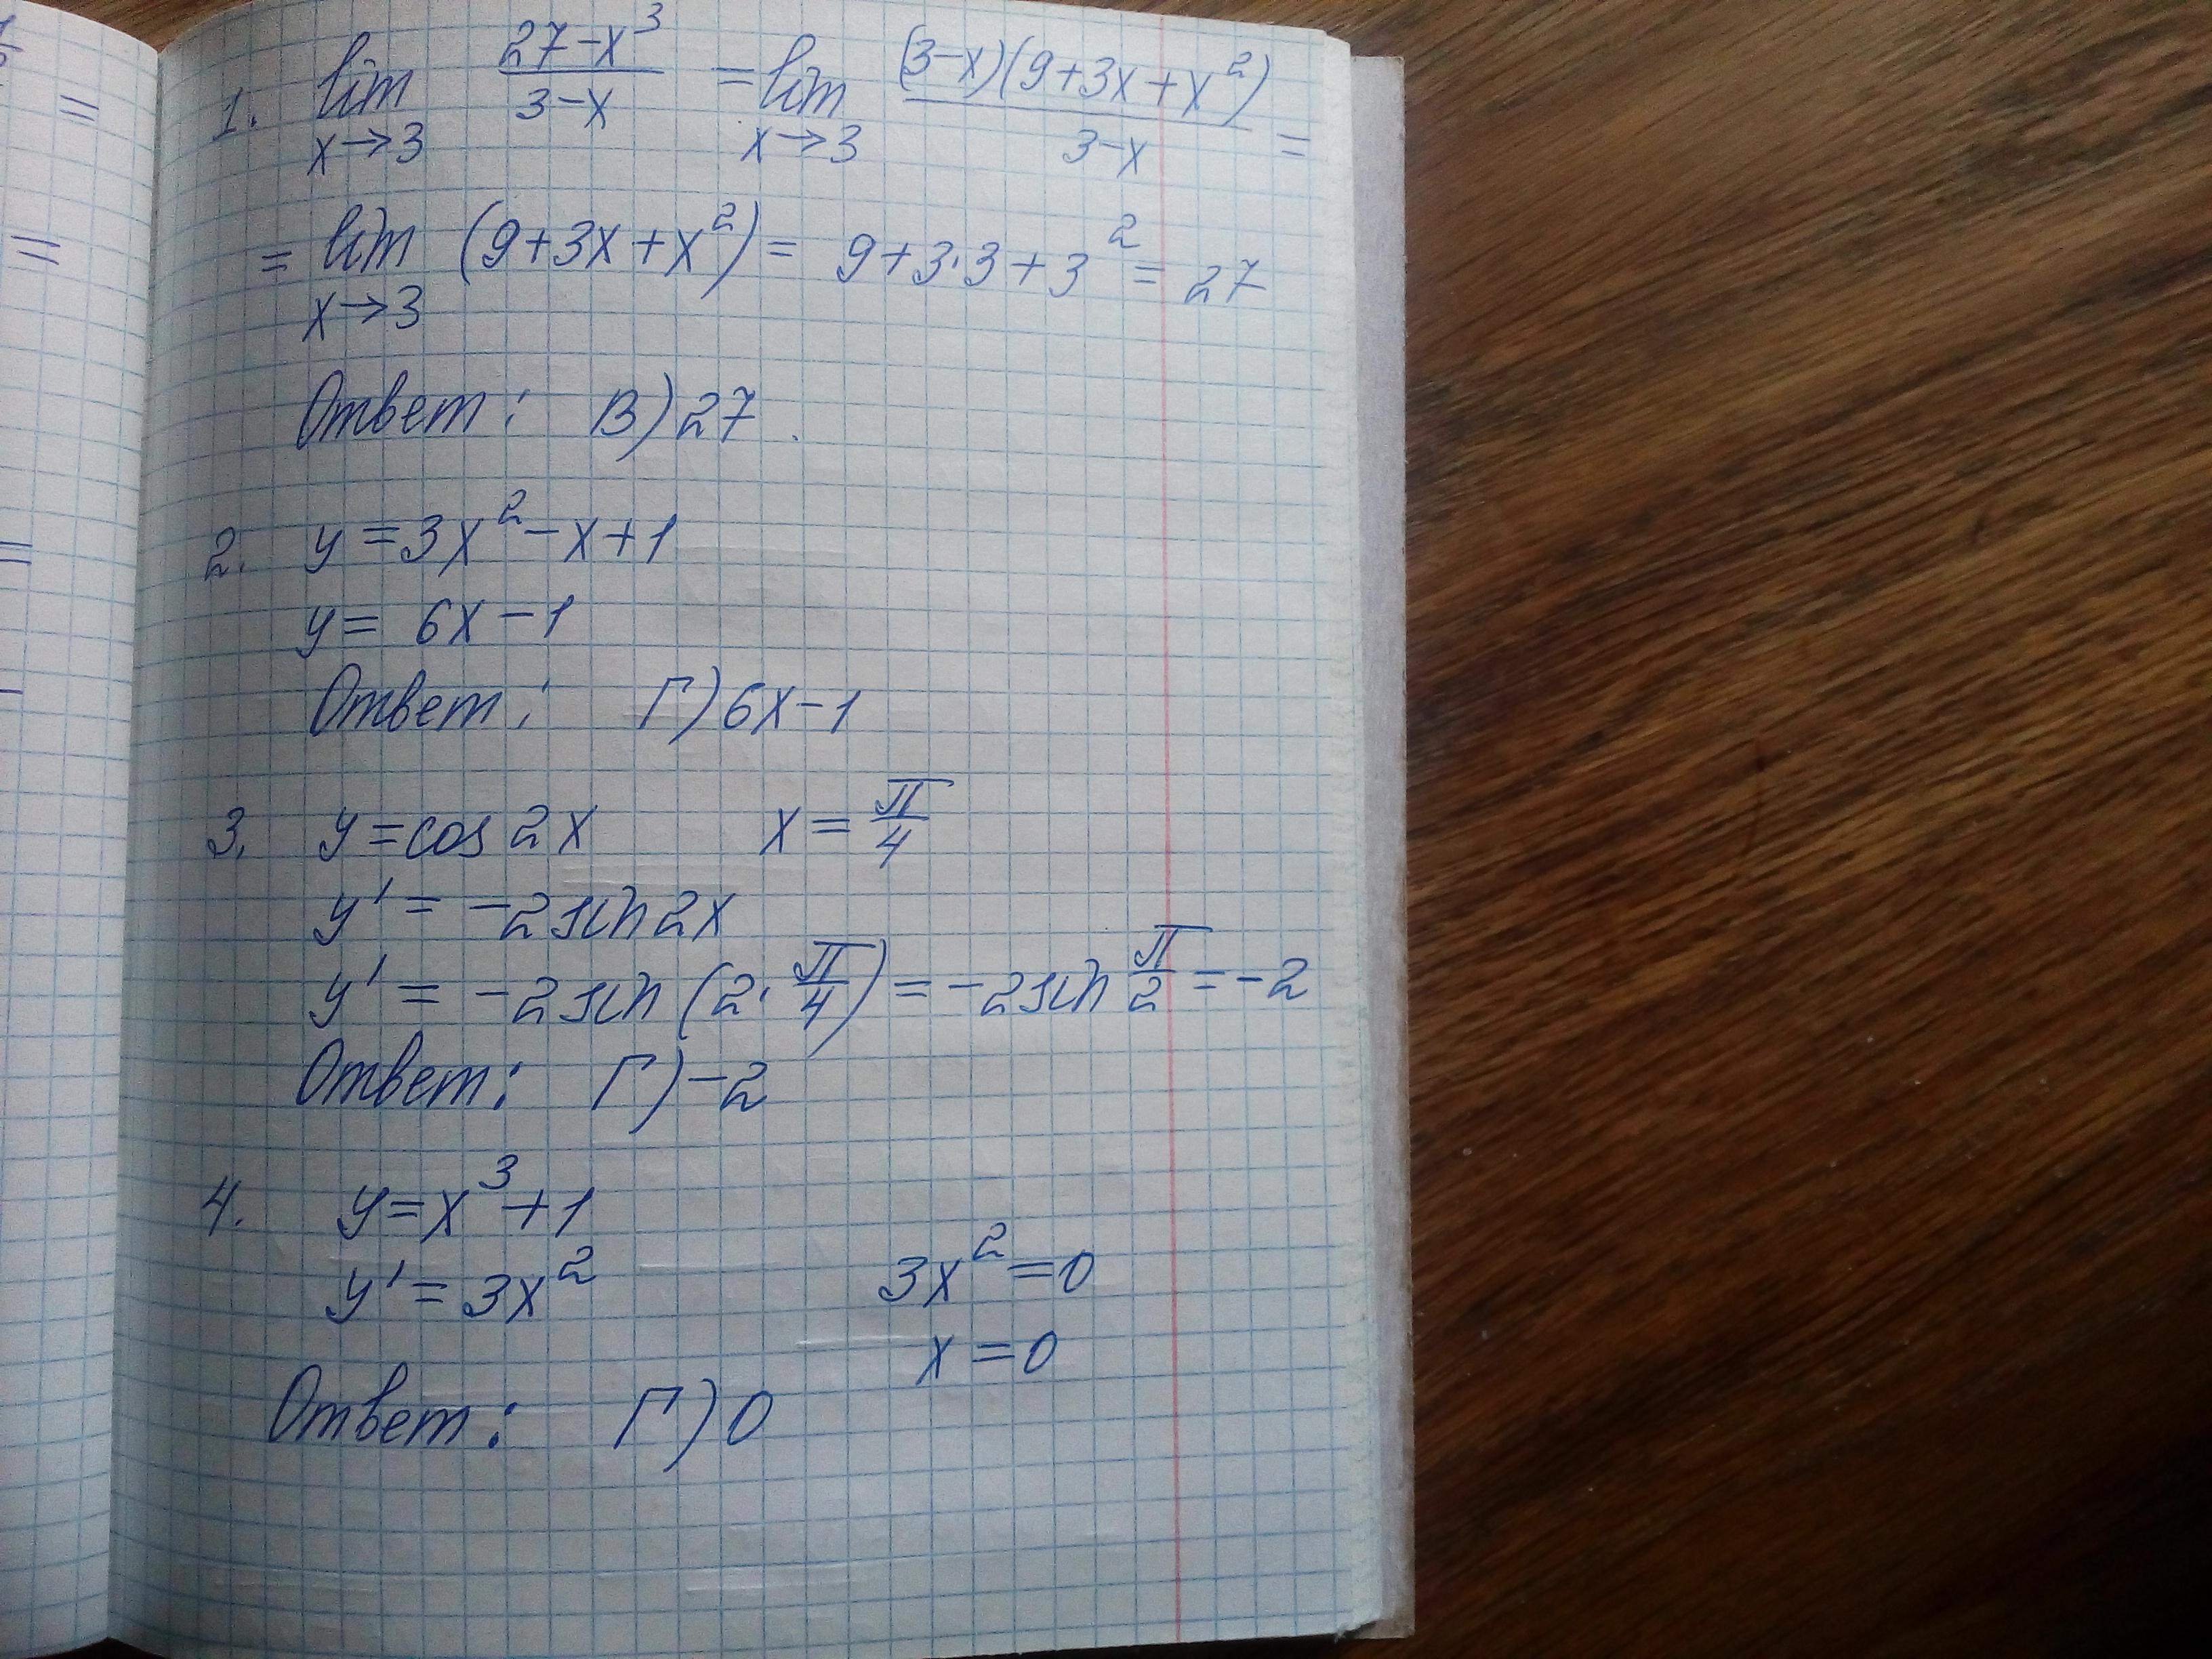 1. lim x→3 (27-x³)/(3-x) = lim x→3 ((3-x)(9+3x+x²))/(3-x) =
= lim x→3 (9+3x+x²) = 9+3·3+3² = 27
Ответ: В) 27.
2. y = 3x²-x+1
y = 6x-1
Ответ: Г) 6x-1
3. y = cos 2x x = π/4
y' = -2 sin 2x
y' = -2 sin (2·π/4) = -2 sin π/2 = -2
Ответ: Г) -2
4. y = x³+1
y' = 3x² 3x² = 0
x = 0
Ответ: Г) 0